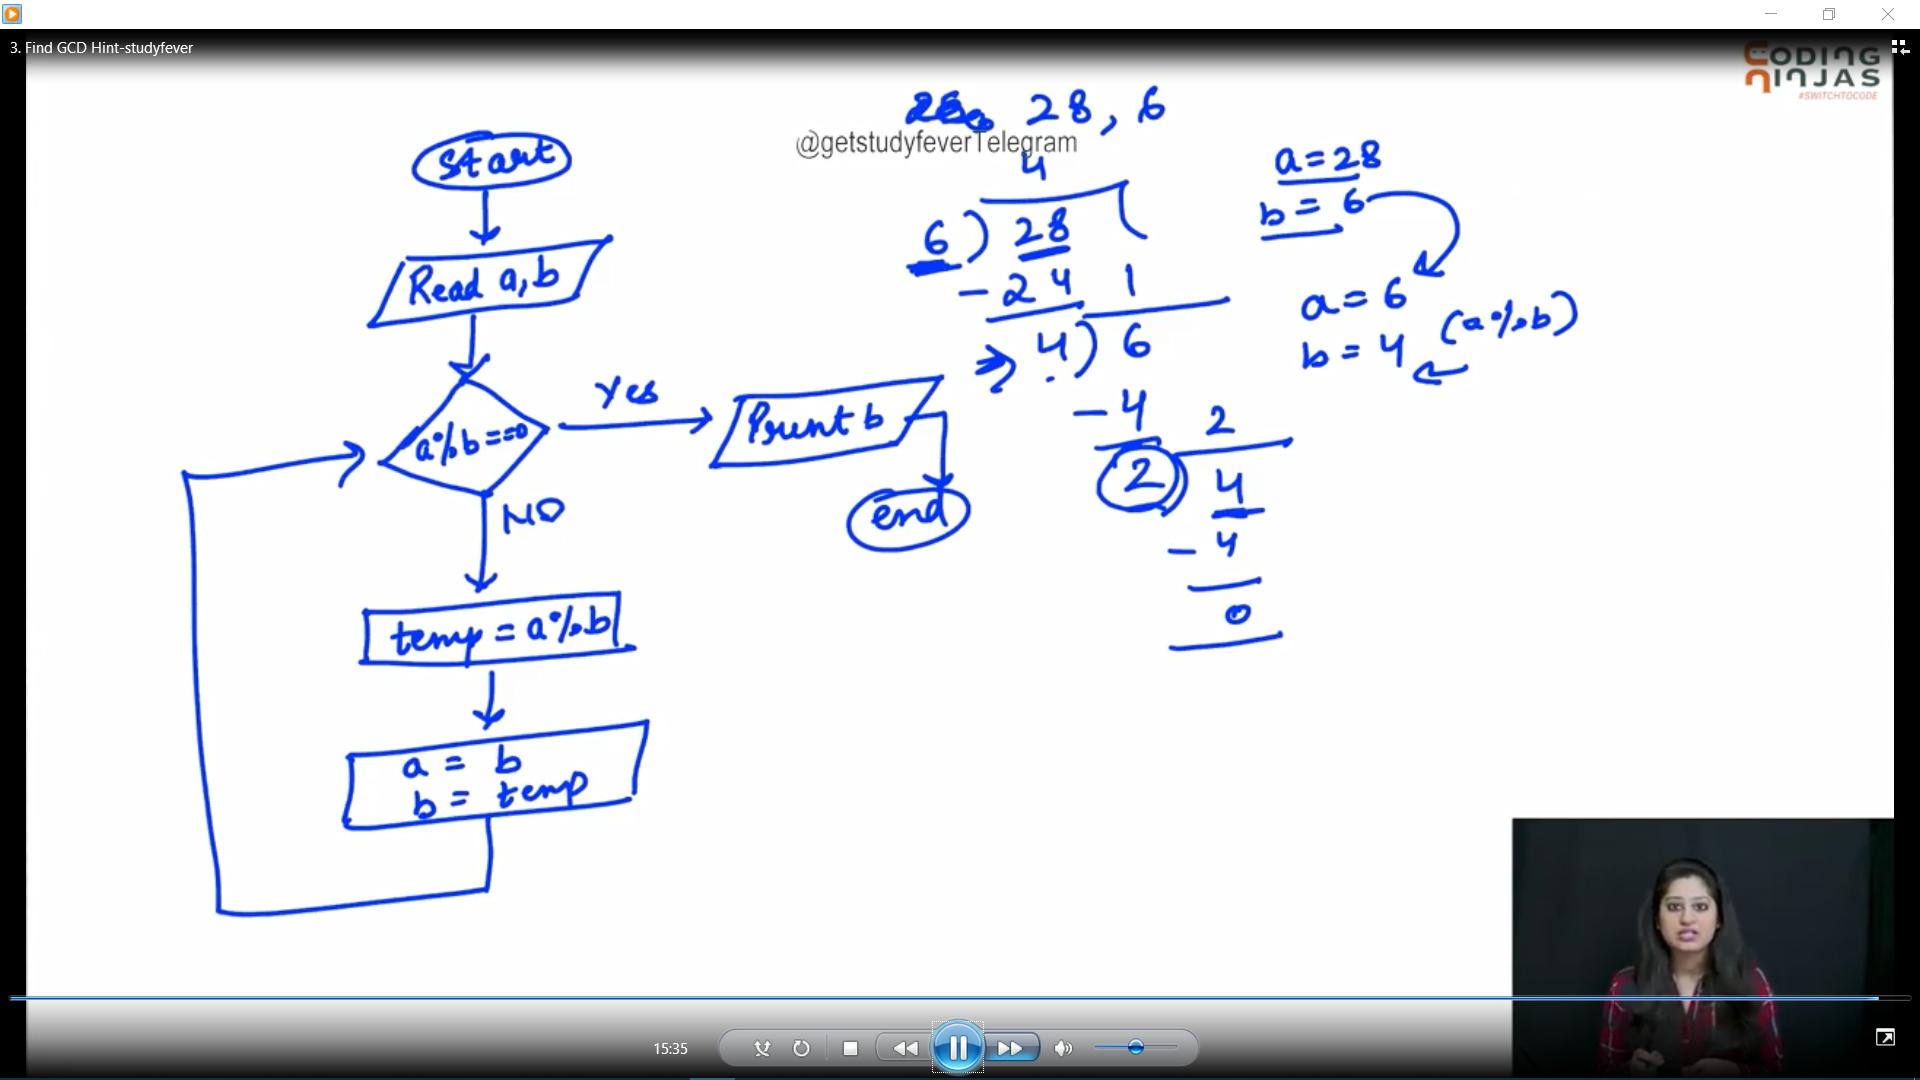 3. Find GCD Hint-studyfever
CODING
NINJAS
#SWITCHTOCODE
28, 6
@getstudyfeverTelegram
Start
Read a, b
a%b==0
Yes
Print b
end
NO
temp = a%b
a = b
b = temp
4
6) 28
- 24 1
4) 6
- 4 2
2) 4
- 4
0
a = 28
b = 6
a = 6
b = 4 (a%b)
15:35